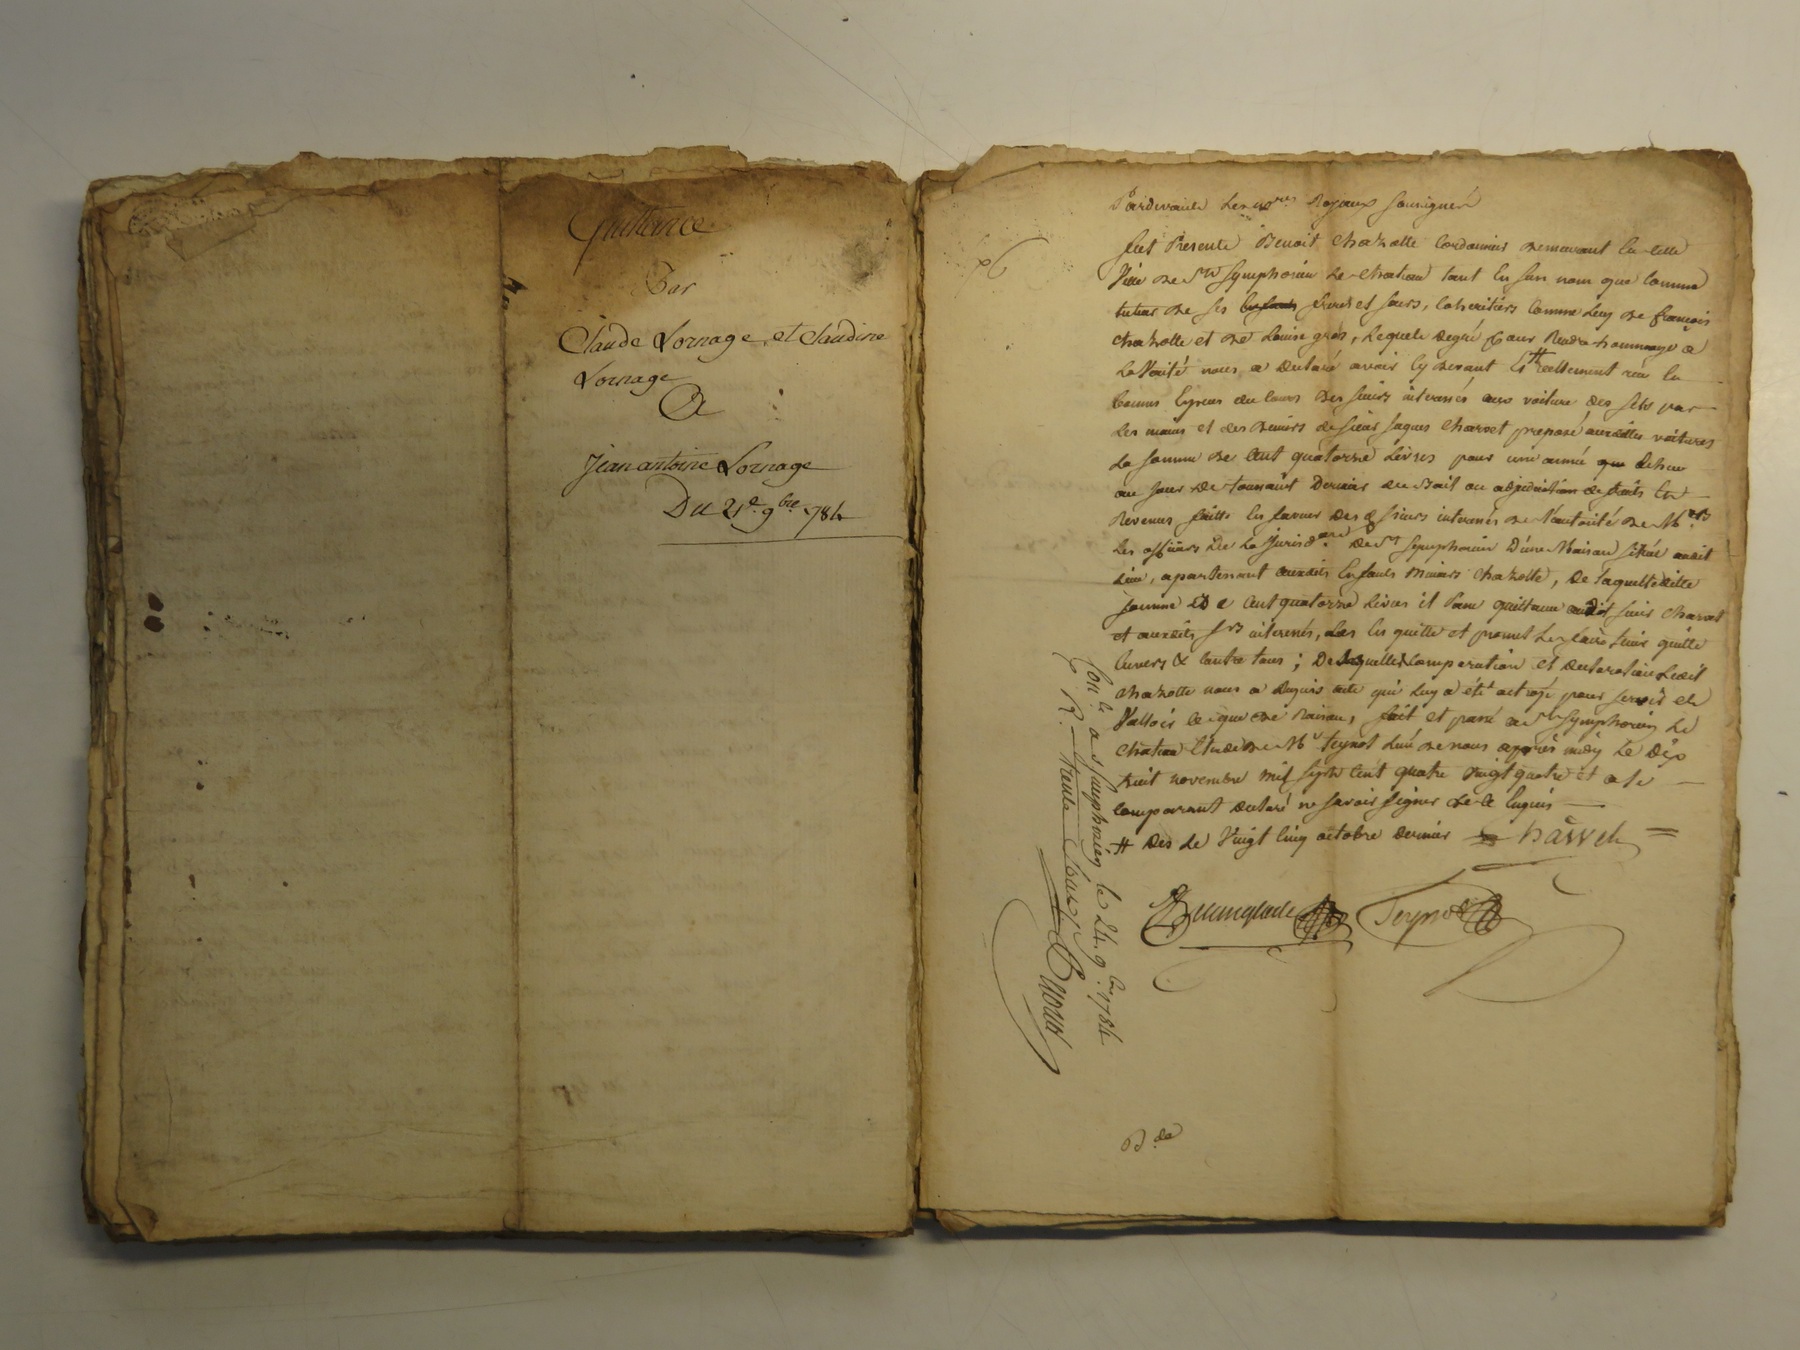 Quittance
Par
Claude Lornage, et Claudine
Lornage
A
Jean antoine Lornage
Du 21e. 9bre 1784
Pardevant Les nores Royaux soussignés
fut Présent Benoit Chazotte Cordonnier demeurant en cette
Ville de St Symphorien Le Chateau tant En son nom que comme
tuteur de ses freres et sœurs, Coheritiers Comme Luy de françois
Chazotte et de Louise gros, Lequel de gré pour Rendre hommage a
La Vérité nous a declaré avoir cy devant # reellement recu en
bonnes Especes du Cours des sieurs interessés aux voitures des sels par
les mains et des deniers de sieur Jaques Charvet preposé auxdites voitures
La somme de Cent quatorze Livres pour une année echue
au jour de toussaint Dernier du Bail ou adjudication de fruits et
Revenus faitte En faveur Des srs interessés de L'autorité de Mrs
Les officiers de La Jurisdon De St Symphorien D'une Maison située audit
Lieu, apartenant auxdits Enfants Mineurs Chazotte, De Laquelle ditte
somme De Cent quatorze Livres il Passe quittance audit sieur Charvet
et auxdits srs interessés, Les En quitte et promet Les faire tenir quitte
Envers & Contre tous ; Desquelles Comparution et declaration Ledit
Chazotte nous a Requis acte qui Luy a été octroyé pour servir et
Valloir ce que de Raison, fait et passé a St Symphorien Le
Chateau Etude de Me Teynot L'un de nous après midy Le Dix
huit novembre mil sept Cent quatre Vingt quatre et a Le
Comparant declaré ne savoir signer de Ce Enquis
# Des Le Vingt Cinq octobre dernier Charvet
Teynot
Conlé a st simphorien le 24. 9bre 1784
R. trente sous
Bde